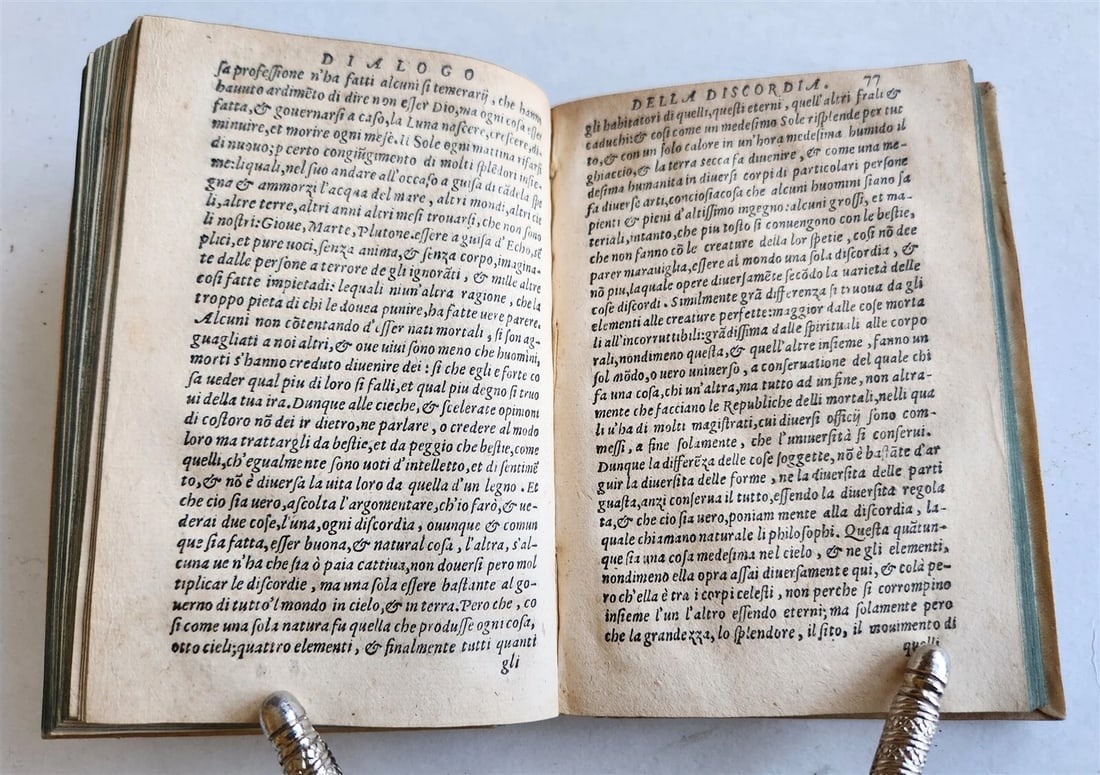 DIALOGO
ſa profeſſione n'ha fatti alcuni ſi temerarij, che hanno
hauuto ardimēto di dire non eſſer Dio, ma ogni coſa eſſer
fatta, & gouernarſi a caſo, la Luna naſcere, creſcere, di-
minuire, et morire ogni meſe. Il Sole ogni mattina rifarſi
di nuouo; p certo congiūgimento di molti ſplēdori inſie-
me: liquali, nel ſuo andare all'occaſo a guiſa di cādela ſpe
gna & ammorzi l'acqua del mare, altri mondi, altri cie
li, altre terre, altri anni altri meſi trouarſi, che non ſono
li noſtri: Gioue, Marte, Plutone. eſſere a guiſa d'Echo, sē
plici, et pure uoci, ſenza anima, & ſenza corpo, imagina-
te dalle perſone a terrore de gli ignorāti, & mille altre
coſi fatte impietadi: lequali niun'altra ragione, che la
troppo pieta di chi le douea punire, ha fatte uere parere.
Alcuni non cōtentando d'eſſer nati mortali, ſi ſon ag-
guagliati a noi altri, & oue uiui ſono meno che huomini,
morti s'hanno creduto diuenire dei: ſi che egli e forte co
ſa ueder qual piu di loro ſi falli, et qual piu degno ſi truo
ui della tua ira. Dunque alle cieche, & ſcelerate opinioni
di coſtoro nō dei ir dietro, ne parlare, o credere al modo
loro ma trattargli da beſtie, et da peggio che beſtie, come
quelli, ch'egualmente ſono uoti d'intelletto, et di ſentimē
to, & nō e diuerſa la uita loro da quella d'un legno. Et
che cio ſia uero, aſcolta l'argomentare, ch'io farò, & ue-
derai due coſe, l'una, ogni diſcordia, ouunque & comun
que ſia fatta, eſſer buona, & natural coſa, l'altra, s'al-
cuna ue n'ha che ſia ò paia cattiua, non douerſi pero mol
tiplicar le diſcordie, ma una ſola eſſere baſtante al go-
uerno di tutto'l mondo in cielo, & in terra. Pero che, co
ſi come una ſola natura fu quella che produſſe ogni coſa,
otto cieli; quattro elementi, & finalmente tutti quanti
gli
DELLA DISCORDIA. 77
gli habitatori di quelli, queſti eterni, quell'altri frali &
caduchi: & coſi come un medeſimo Sole riſplende per tut
to, & con un ſolo calore in un'hora medeſima humido il
ghiaccio, & la terra ſecca fa diuenire, & come una me-
deſima humanita in diuerſi corpi di particolari perſone
fa diuerſe arti, concioſiacoſa che alcuni huomini ſiano ſa
pienti & pieni d'altiſſimo ingegno: alcuni groſſi, et ma-
teriali, intanto, che piu toſto ſi conuengono con le beſtie,
che non fanno cō le creature della lor ſpetie, coſi nō dee
parer marauiglia, eſſere al mondo una ſola diſcordia, &
nō piu, laquale opere diuerſamēte ſecōdo la varietà delle
coſe diſcordi. Similmente grā differenza ſi truoua da gli
elementi alle creature perfette: maggior dalle coſe morta
li all'incorruttubili: grādiſſima dalle ſpirituali alle corpo
rali, nondimeno queſta, & quell'altre inſieme, fanno un
ſol mōdo, o uero uniuerſo, a conſeruatione del quale chi
fa una coſa, chi un'altra, ma tutto ad un fine, non altra-
mente che facciano le Republiche delli mortali, nelli qua
li u'ha di molti magiſtrati, cui diuerſi officij ſono com-
meſſi, a fine ſolamente, che l'uniuerſità ſi conſerui.
Dunque la differēza delle coſe ſoggette, nō è baſtāte d'ar
guir la diuerſita delle forme, ne la diuerſita delle parti
guaſta, anzi conſerua il tutto, eſſendo la diuerſita regola
ta, & che cio ſia uero, poniam mente alla diſcordia, la-
quale chiamano naturale li philoſophi. Queſta quātun-
que ſia una coſa medeſima nel cielo, & ne gli elementi,
nondimeno ella opra aſſai diuerſamente qui, & colà pe-
ro ch'ella è tra i corpi celeſti, non perche ſi corrompino
inſieme l'un l'altro eſſendo eterni; ma ſolamente pero
che la grandezza, lo ſplendore, il ſito, il mouimento di
quelli